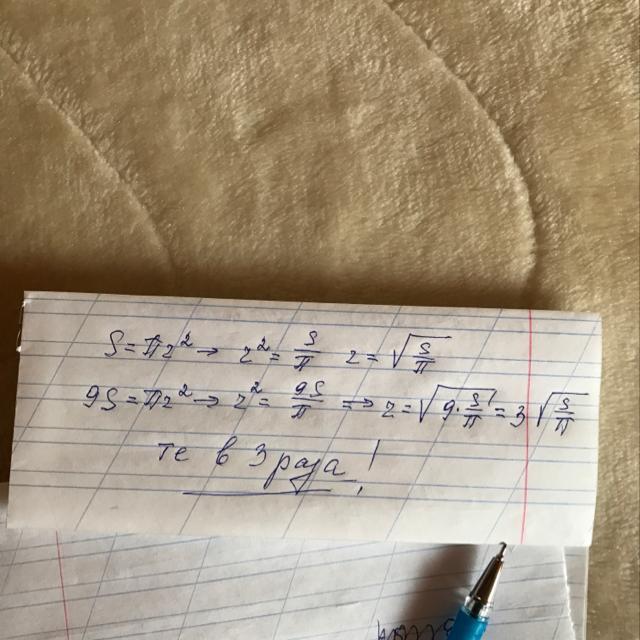 S = πr² → r² = S/π r = √(S/π)
9S = πr² → r² = 9S/π ⇒ r = √(9·S/π) = 3√(S/π)
те в 3 раза!